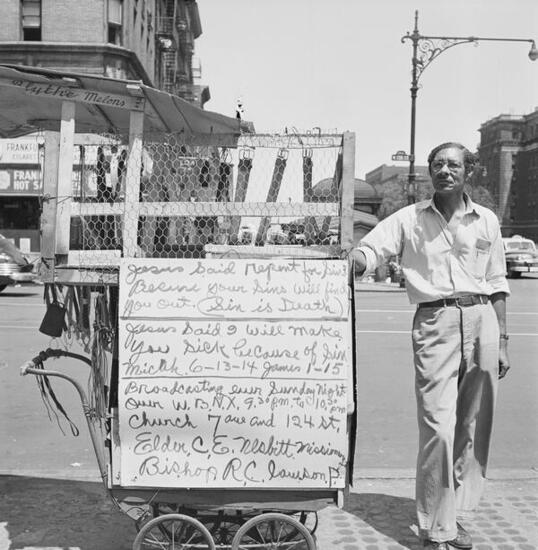 Blythe Melons
FRANKF
CIGARET
FRAN
HOT SA
Jesus Said repent for Sin's
Becuse your Sins will find
you out. (Sin is Death)
Jesus Said I Will make
You Sick because of Sin
Micah 6-13-14 James 1-15
Broadcasting ever Sunday Night
Over W.B.N.X, 9.30 P.M. to 10,30 P.M
Church 7 ave and 124 St,
Elder, C. E. Nesbitt, Missionary
Bishop R. C. Lawson, P.